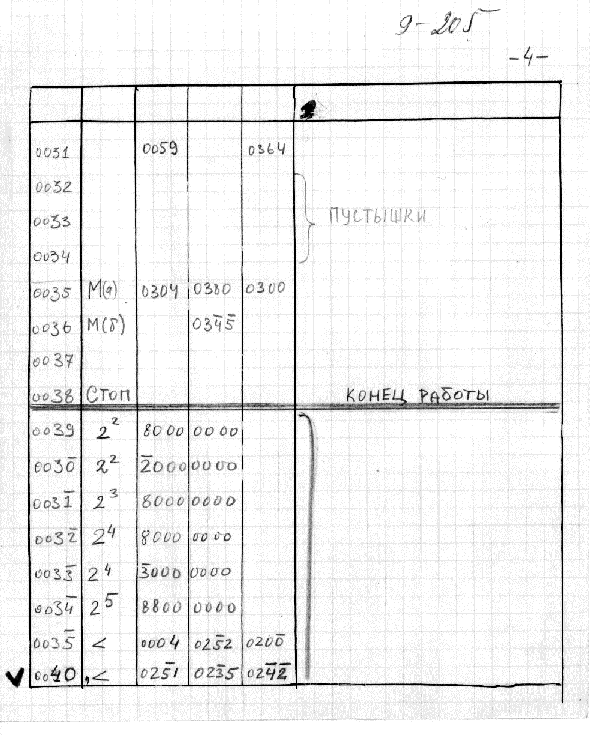 9-205̅
-4-
0031 0059 0364
0032
0033 ПУСТЫШКИ
0034
0035 М(а) 0304 0380 0300
0036 М(б) 034̅5̅
0037
0038 СТОП КОНЕЦ РАБОТЫ
0039 2² 8000 0000
0030̅ 2² 2̅000 0000
0031̅ 2³ 8000 0000
0032̅ 2⁴ 8000 0000
0033̅ 2⁴ 3̅000 0000
0034̅ 2⁵ 8800 0000
0035̅ < 0004 025̅2 0200̅
0040 ,< 025̅1 023̅5 024̅2̅